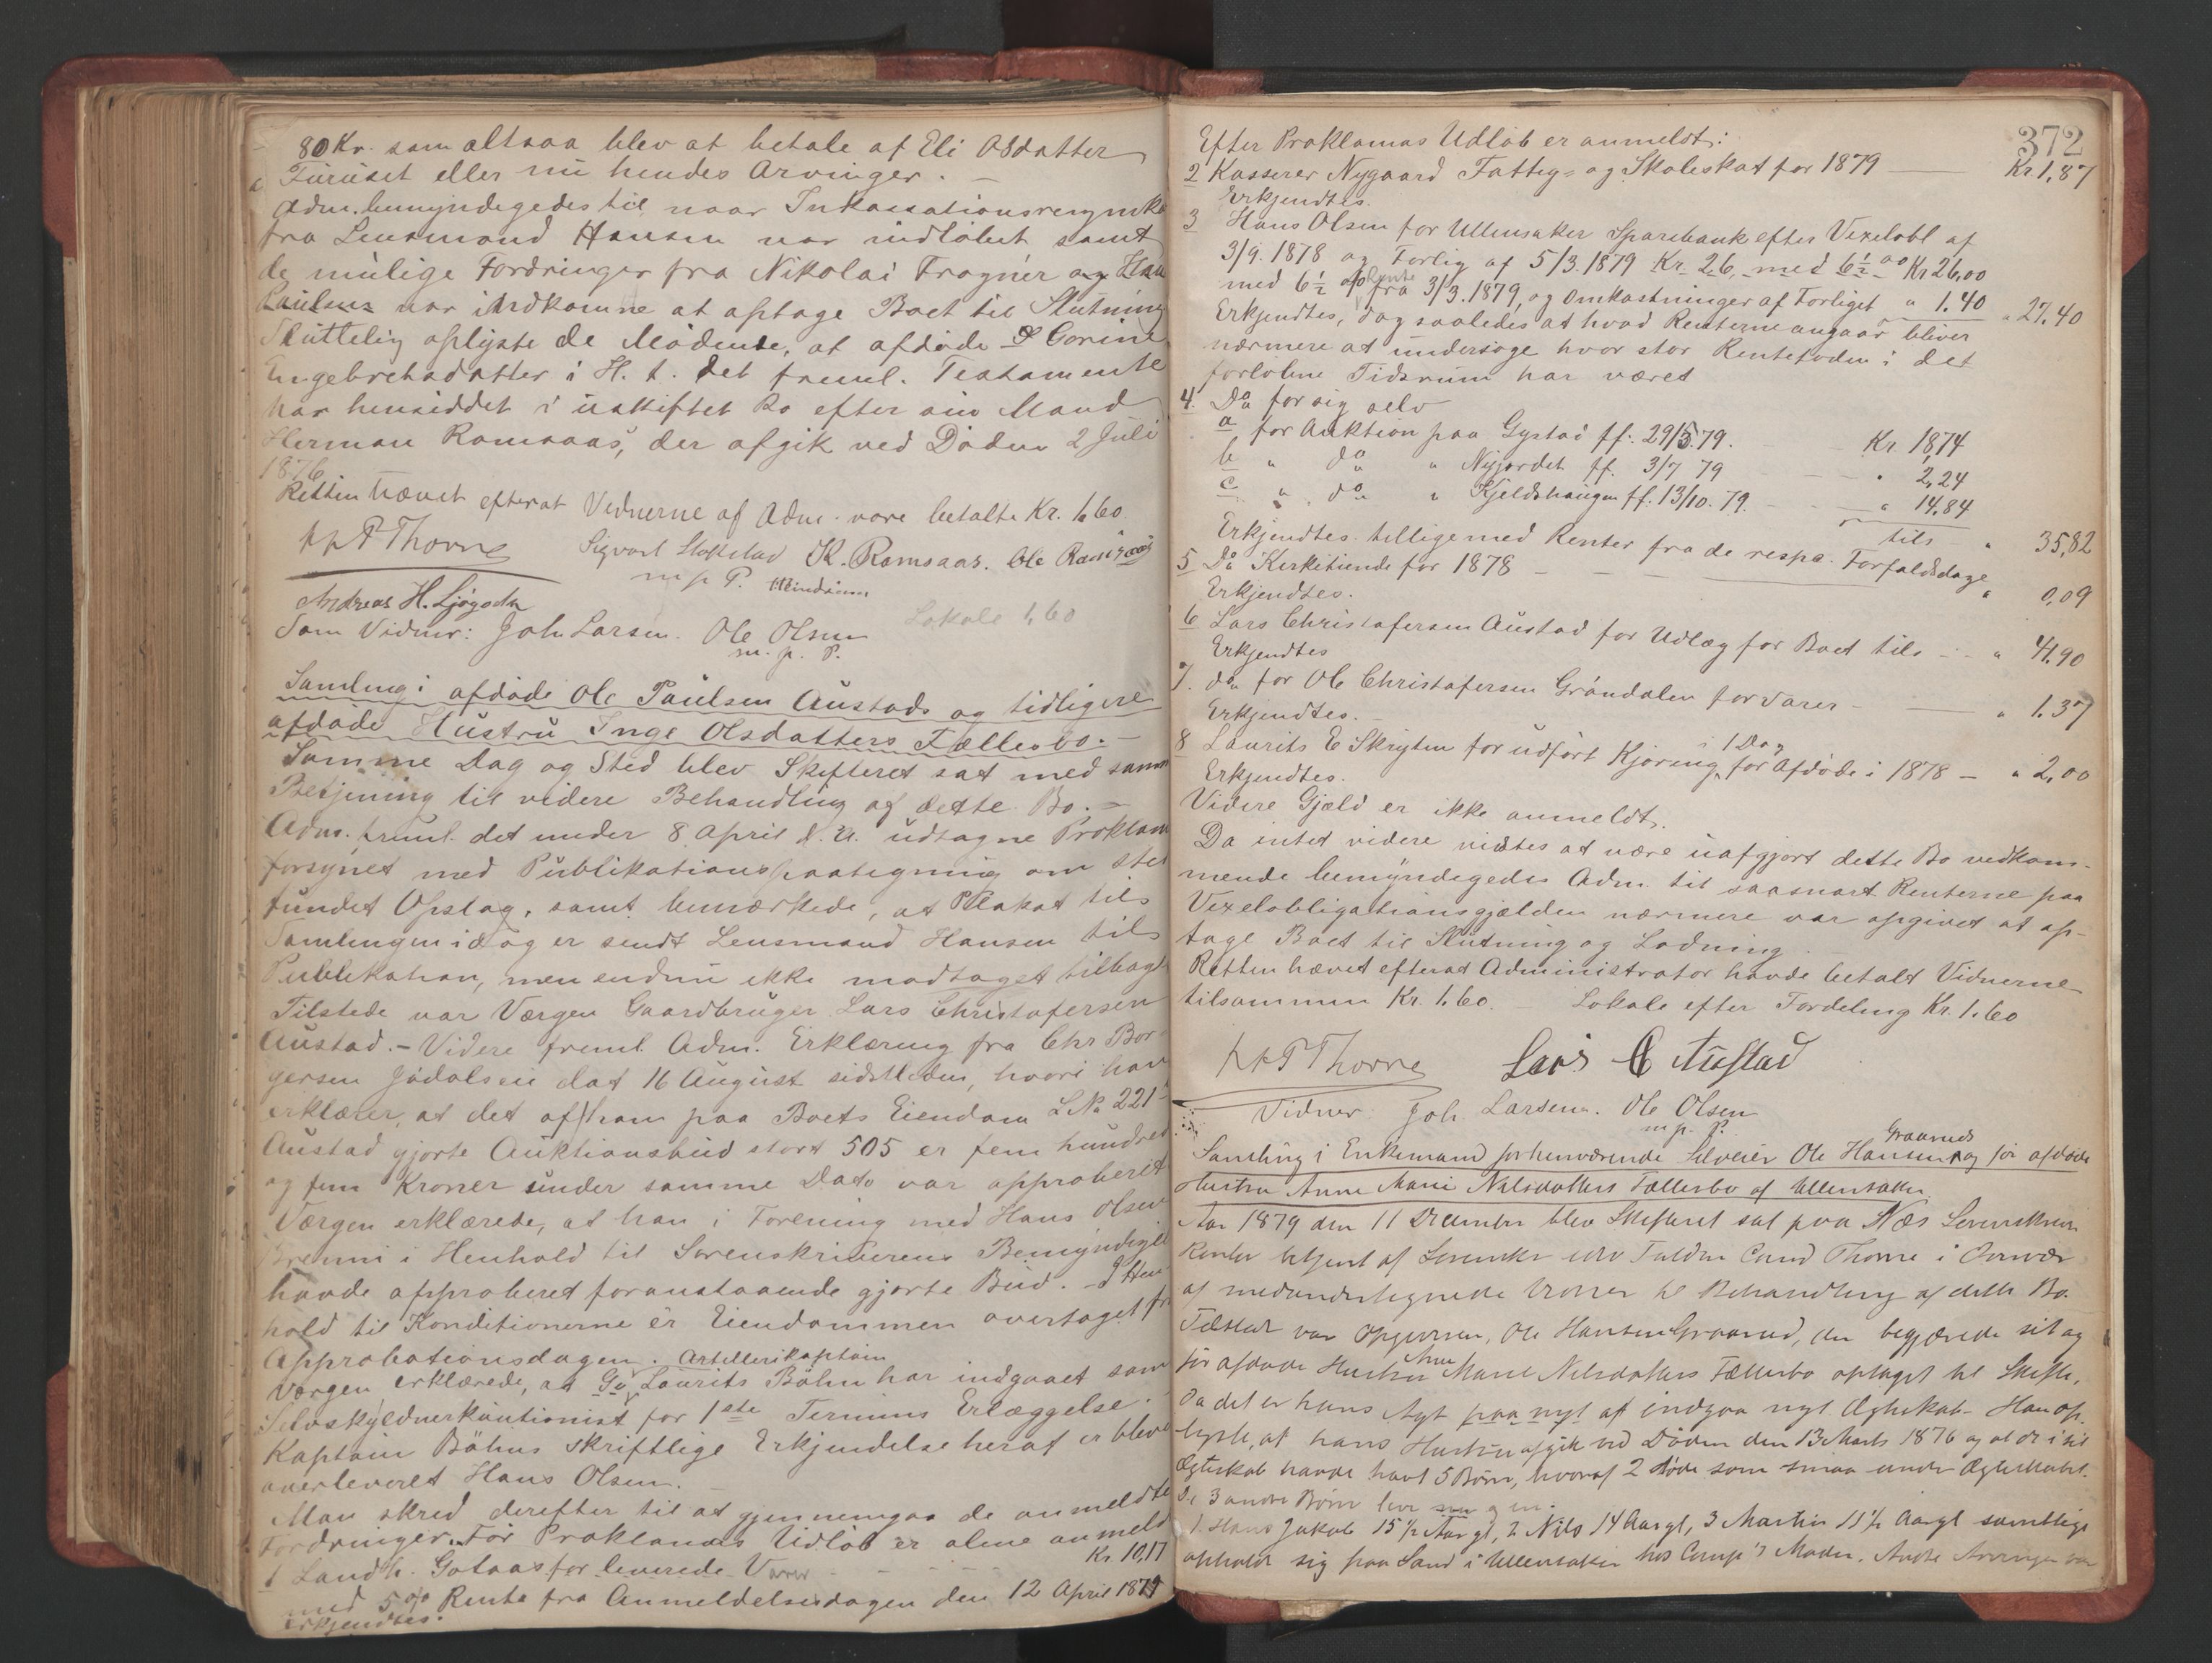 80 Kr. som altsaa blev at betale af Eli Olsdatter
Furuset eller nu hendes Arvinger. —
Adm. bemyndigedes til naar
fra Lensmand Hansen var indløbet samt
de mulige Fordringer fra Nikolai Fragnér og
Paulsen var indkomne at optage Boet til Slutning
Sluttelig oplyste de Mødende, at afdøde Gorine
Engebretsdatter i H. t. det freml. Testamente
har hensiddet i uskiftet Bo efter sin Mand
Herman Ramsaas, der afgik ved Døden 2 Juli
1876
Retten hævet efterat Vidnerne af Adm. vare betalte Kr. 1.60.
Thorne Sigvart Stokstad K. Ramsaas. Ole Ramsaas
m p P.
Andreas H.
Som Vidner: Joh Larsen. Ole Olsen Lokale 1,60
m. p. P.
Samling i afdøde Ole Paulsen Austads og tidligere
afdøde Hustru Inge Olsdatters Fællesbo. —
Samme Dag og Sted blev Skifteret sat med samme
Betjening til videre Behandling af dette Bo. —
Adm. freml. det under 8 April d. A. udtagne Proklam
forsynet med Publikationspaategning om sted
fundet Opslag, samt bemærkede, at Plakat til
Samlingen idag er sendt Lensmand Hansen til
Publikation, men endnu ikke modtaget tilbage
Tilstede var Værgen Gaardbruger Lars Christofersen
Austad. — Videre freml. Adm. Erklæring fra Chr Bor-
gersen Jødalseie dat 16 August sidstleden, hvori han
erklærer, at det af ham paa Boets Eiendom L No 221
Austad gjorte Auktionsbud stort 505 er fem hundred
og fem Kroner under samme Dato var approberet
Værgen erklærede, at han i Forening med Hans Olsen
Brenni i Henhold til Sorenskriverens
havde approberet foranstaaende gjorte Bud. — I Hen-
hold til Konditionerne er Eiendommen overtaget fra
Approbationsdagen. Artillerikaptain
Værgen erklærede, at Laurits Bøhn har indgaaet som
Selvskyldnerkautionist for 1ste Termins Erlæggelse.
Kaptain Bøhns skriftlige Erkjendelse heraf er bleven
overleveret Hans Olsen.
Man skred derefter til at gjennemgaa de anmeldte
Fordringer. Før Proklamas Udløb er alene anmeldt
1 Landh. Gotaas for leverede Varer Kr. 10,17
med 5 % Rente fra Anmeldelsesdagen den 12 April 1879
Erkjendtes.
372
Efter Proklamas Udløb er anmeldt:
2 Kasserer Nygaard Fattig- og Skoleskat for 1879 — Kr. 1,87
Erkjendtes.
3 Hans Olsen for Ullensaker Sparebank efter Vexelobl af
3/9. 1878 og Forlig af 5/3. 1879 Kr. 26, med 6½ % Kr 26,00
med 6½ % Rente fra 3/3. 1879, og Omkostninger af Forliget " 1.40 " 27.40
Erkjendtes, dog saaledes at hvad Renterne angaar bliver
nærmere at undersøge hvor stor Rentefoden i det
forløbne Tidsrum har været
4. Do for sig selv
a for Auktion paa Gystad ff. 29/5. 79. — Kr 18,74
b " do " Nyjordet ff. 3/7 79 — " 2,24
c " do " Kjeldshaugen ff. 13/10. 79. — " 14.84
tils " 35,82
Erkjendtes tilligemed Renter fra de resp. Forfaldsdage
5 Do Kirketiende for 1878 — " 0,09
Erkjendtes.
6 Lars Christofersen Austad for Udlæg for Boet tils — " 41.90
Erkjendtes
7. do for Ole Christofersen Grøndalen for Varer — " 1.37
Erkjendtes. —
8 Laurits E Skryten for udført Kjøring 1 Dag for Afdøde i 1878 — " 2,00
Erkjendtes.
Videre Gjæld er ikke anmeldt.
Da intet videre vidstes at være uafgjort dette Bo vedkom-
mende bemyndigedes Adm. til saasnart Renterne paa
Vexelobligationsgjælden nærmere var opgivet at op-
tage Boet til Slutning og Lodning.
Retten hævet efterat Administrator havde betalt Vidnerne
tilsammen Kr. 1.60. — Lokale efter Fordeling Kr. 1.60
Thorne Lars C Austad
Vidner: Joh Larsen. Ole Olsen
m. p. P.
Samling i Enkemand forhenværende Selveier Ole Hansen Graaruds og før afdøde
Hustru Anne Marie Nilsdatters Fællesbo af Ullensaker.
Aar 1879 den 11 December blev Skifteret sat paa Næs Sorenskriver
Kontor betjent af Sorenskr ved Fuldm Cand Thorne i Overvær
af medundertegnede Vidner til Behandling af dette Bo.
Tilstede var Opgiveren, Ole Hansen Graarud, der begjærede sit og
før afdøde Hustru Anne Marie Nilsdatters Fællesbo optaget til Skifte,
da det er hans Agt paa nyt at indgaa nyt Ægteskab. Han op-
lyste, at hans Hustru afgik ved Døden den 13 Marts 1876 og at de i sit
Ægteskab havde havt 5 Børn, hvoraf 2 døde som smaa under Ægteskabet.
De 3 andre Børn
1 Hans Jakob 15½ Aar gl, 2 Nils 14 Aar gl, 3 Martin 11½ Aar gl samtlige
opholde sig paa Sand i Ullensaker hos Comp's Moder. Andre Arvinger var